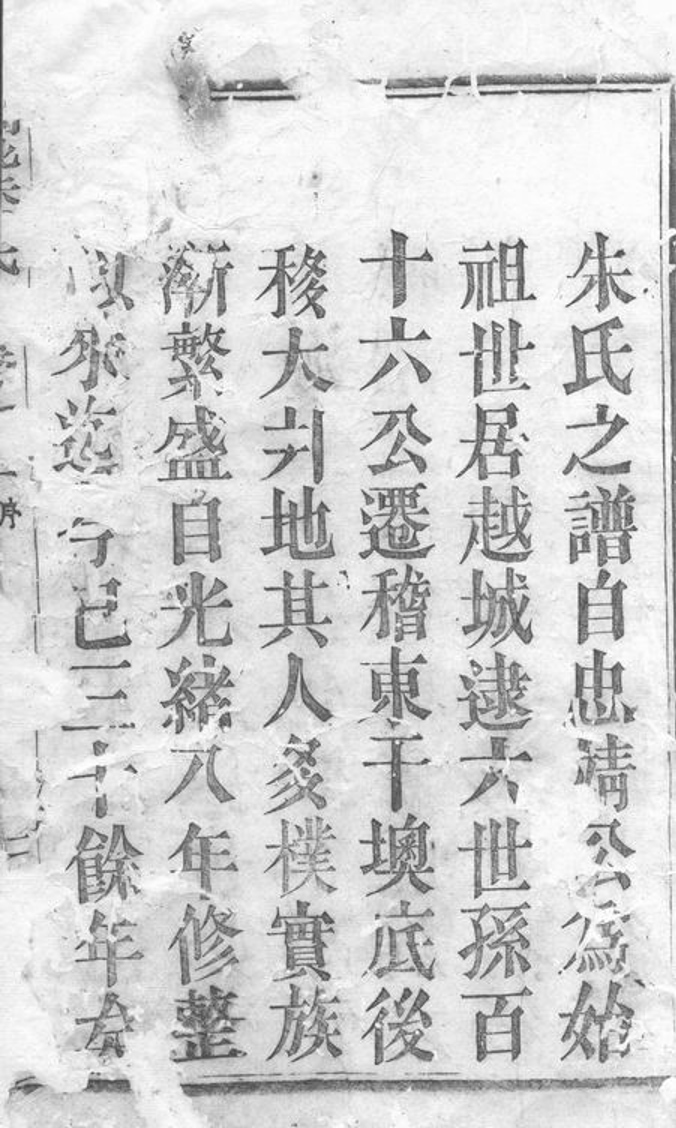 朱氏之譜自忠靖公為始
祖世居越城逮六世孫百
十六公遷稽東干墺底後
移大刋地其人多樸實族
漸繁盛自光緒八年修整
以來迄今已三十餘年
序